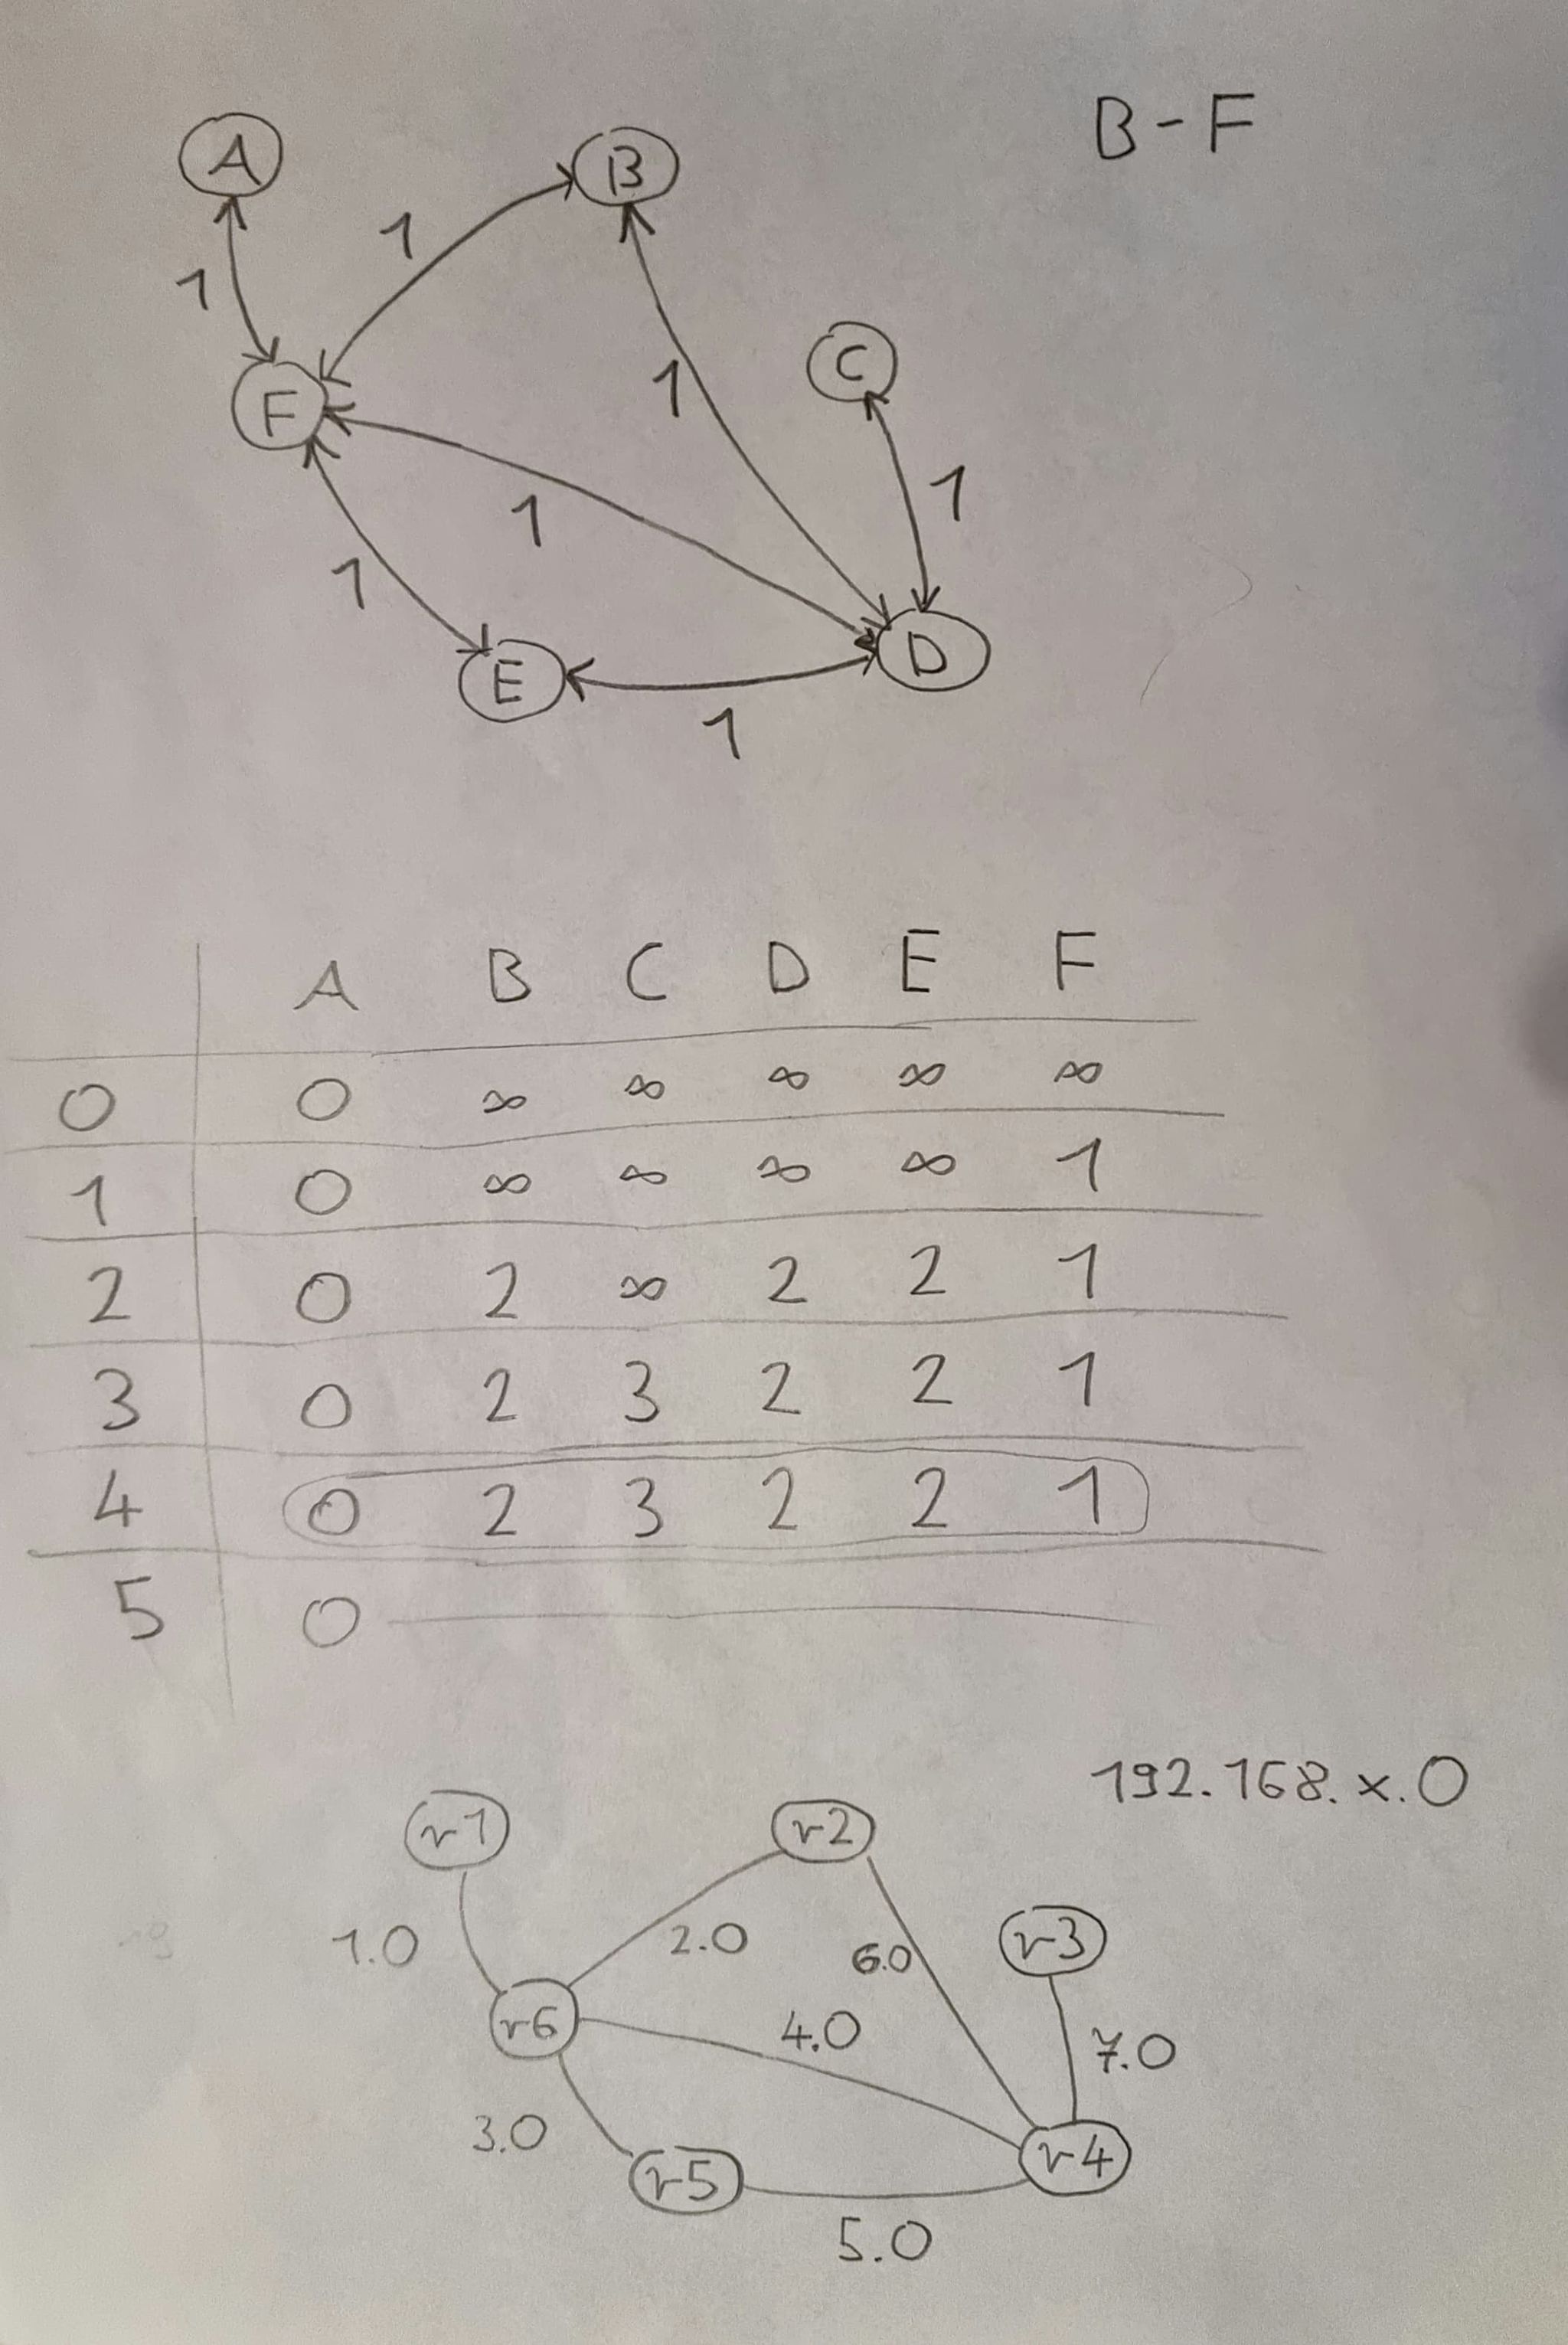 B-F
A
B
1
1
C
F
1
1
1
1
E
D
1
A B C D E F
0 0 ∞ ∞ ∞ ∞ ∞
1 0 ∞ ∞ ∞ ∞ 1
2 0 2 ∞ 2 2 1
3 0 2 3 2 2 1
4 0 2 3 2 2 1
5 0
192.168.x.0
r1
r2
1.0
2.0
6.0
r3
r6
4.0
7.0
3.0
r5
r4
5.0